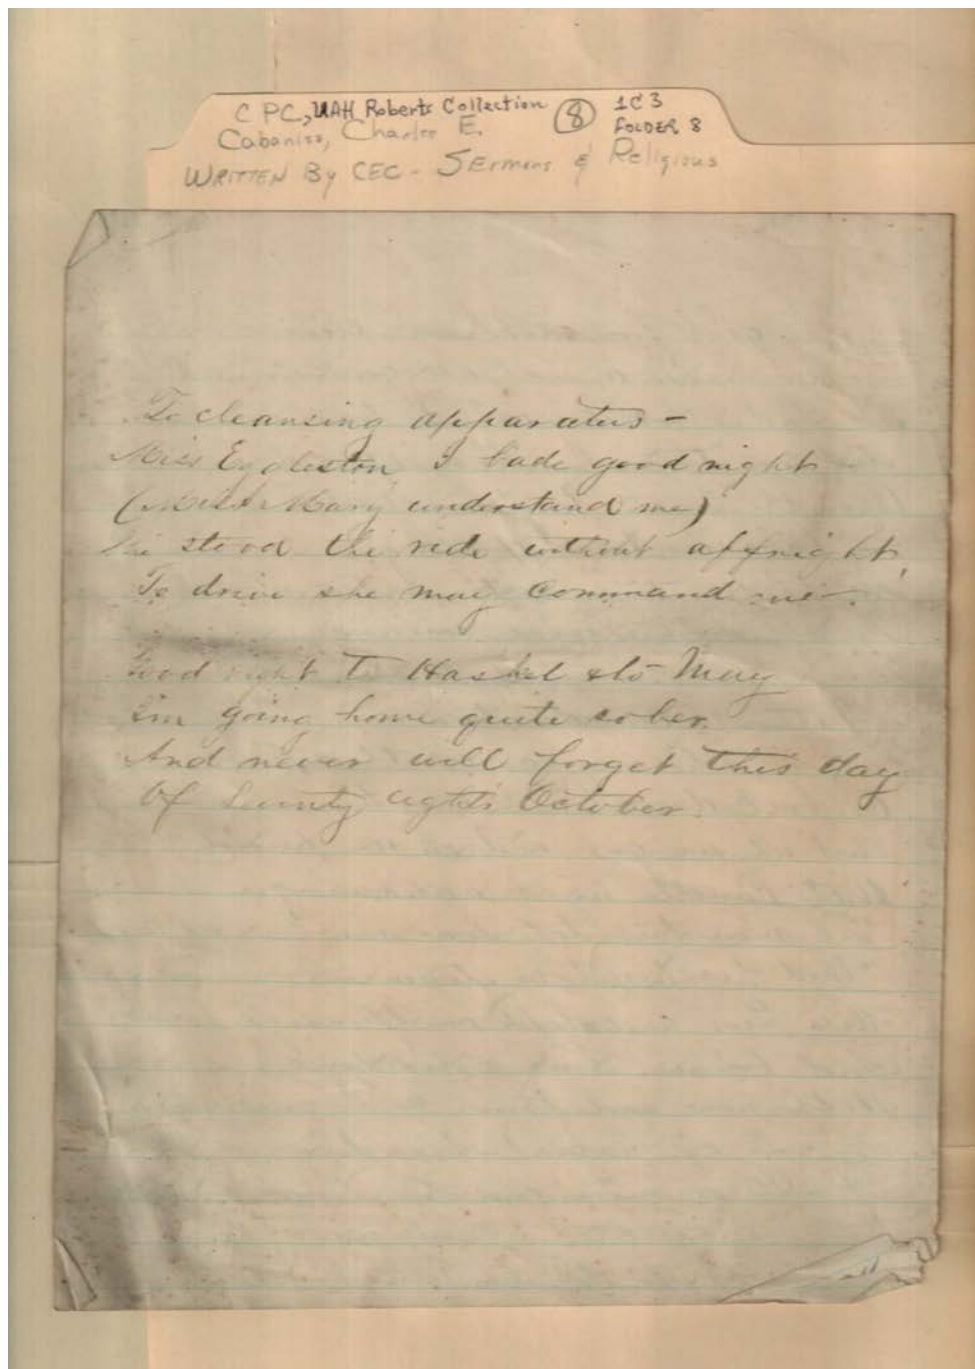 C PC, UAH Roberts Collection (8) 1C3
FOLDER 8
Cabaniss, Charles E.
WRITTEN By CEC - SErmons & Religious
To cleansing apparatus -
Miss Eggleston I bade good night
(Miss Mary understand me)
She stood the ride without affright,
To drive she may command me.
Good night to Haskel & to May
I'm going home quite sober.
And never will forget this day
Of twenty eighth October.